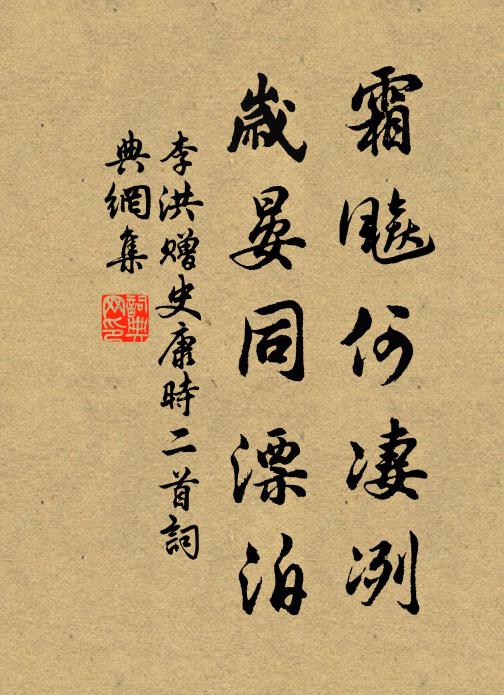 霜飈何凄冽
歲晏同漂泊
李洪贈史康時二首詞
典網集
詞典
网印